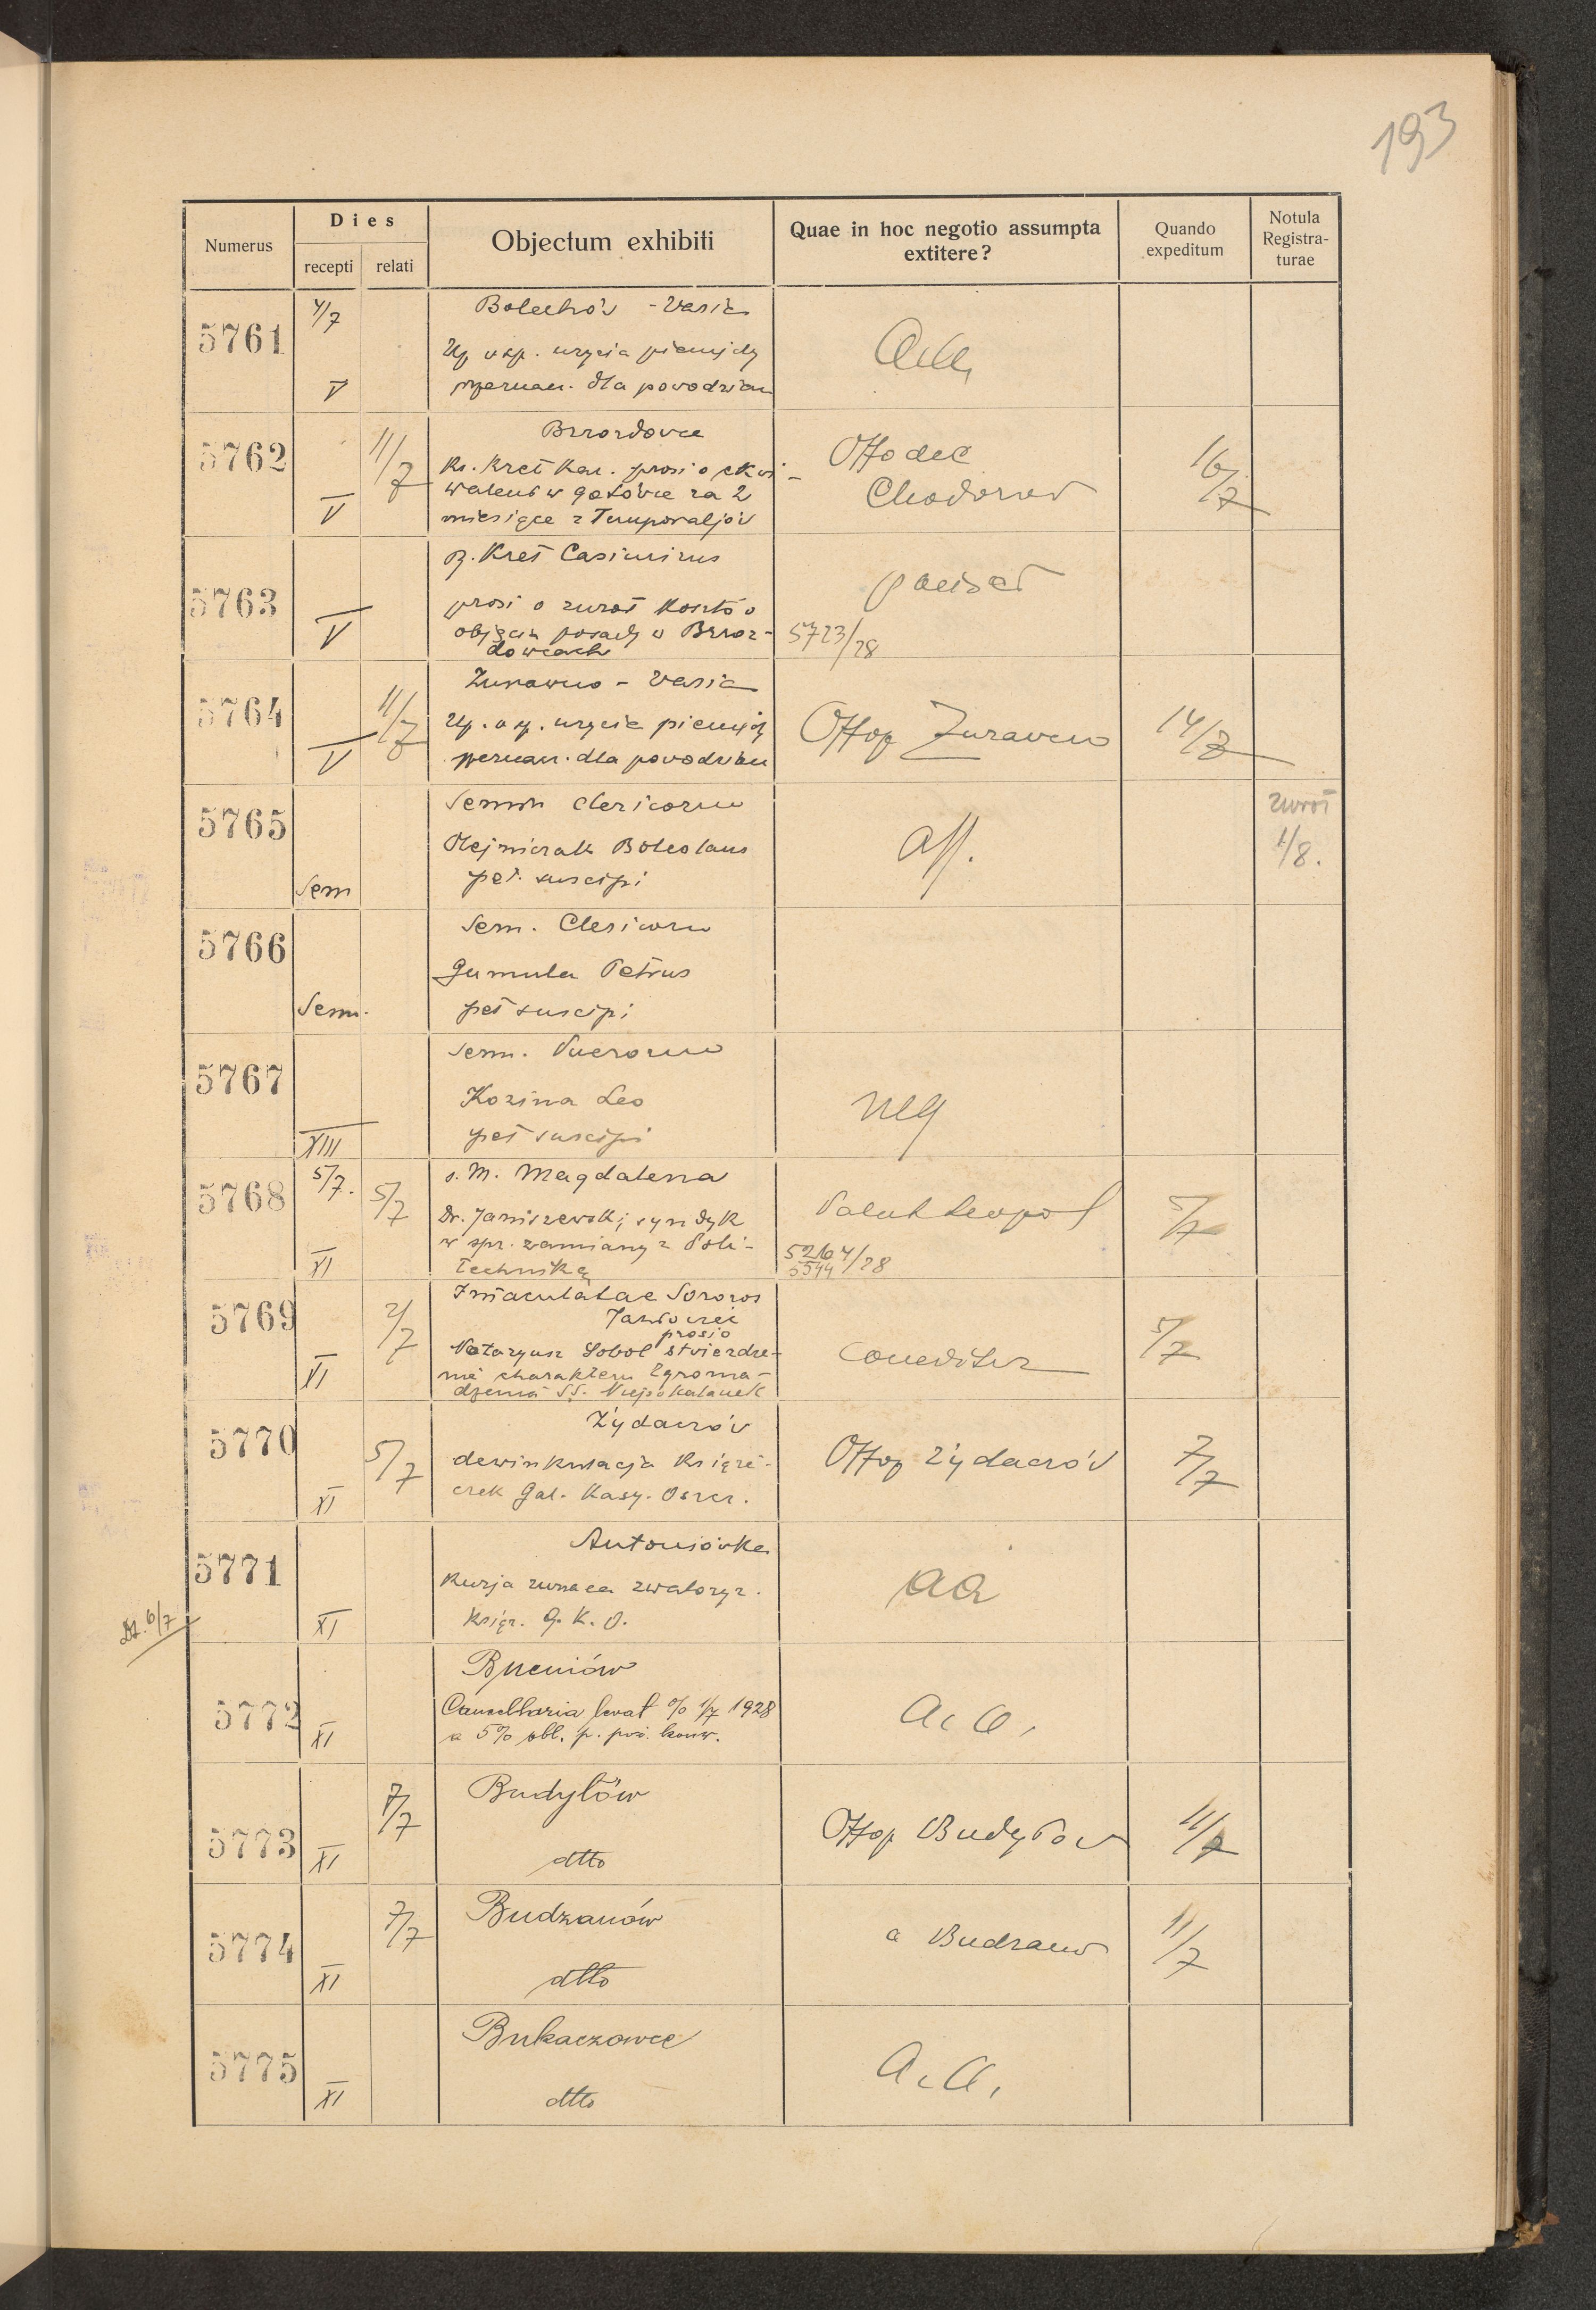 193
Numerus
Dies
recepti
relati
Objectum exhibiti
Quae in hoc negotio assumpta
extitere?
Quando
expeditum
Notula
Registra-
turae
5761
4/7
V
Bolechów - Varia
użycia pieniędzy
dla powodzian
5762
V
11/7
Brzozdowce
Ks. Kret Kaz. prosi o ekwi-
walent w gotówce za 2
miesiące z Temporaljów
Offo dec
Chodorow
16/7
5763
V
Kret Casimirus
prosi o zwrot kosztów
objęcia posady w Brzoz-
dowcach
5723/28
5764
V
11/7
Żurawno - Varia
użycie pieniędzy
dla powodzian
Offop Żurawno
14/7
5765
Sem
Semin clericorum
Olejniczak Boleslaus
pet. suscipi
aff.
zwrot
1/8.
5766
Sem.
Sem. Clericorum
Gumula Petrus
pet suscipi
5767
XIII
Sem. Puerorum
Kozina Leo
pet suscipi
neg
5768
5/7.
XI
5/7
s. M. Magdalena
Dr. Janiszewski syndyk
w spr. zamiany z Poli-
techniką
5264/28
5544
5/7
5769
XI
2/7
Immaculatae Sorores
Jazłowiec
prosi o
Notaryusz Sobol stwierdze-
nie charakteru Zgroma-
dzenia SS. Niepokalanek
conceditur
5/7
5770
XI
5/7
Żydaczów
dewinkulacja książe-
czek Gal. Kasy. Oszcz.
Offop Żydaczów
7/7
5771
XI
Antoniówka
Kurja zwraca zwaloryz.
książ. G. K. O.
aa
Dz. 6/7
5772
XI
Bueniów
Cancellaria levat % 1/7 1928
a 5% obl. p. poż. konw.
a. a.
5773
XI
7/7
Budyłów
dtto
Offop Budyłow
11/7
5774
XI
7/7
Budzanów
dtto
a Budzanow
11/7
5775
XI
Bukaczowce
dtto
a. a.